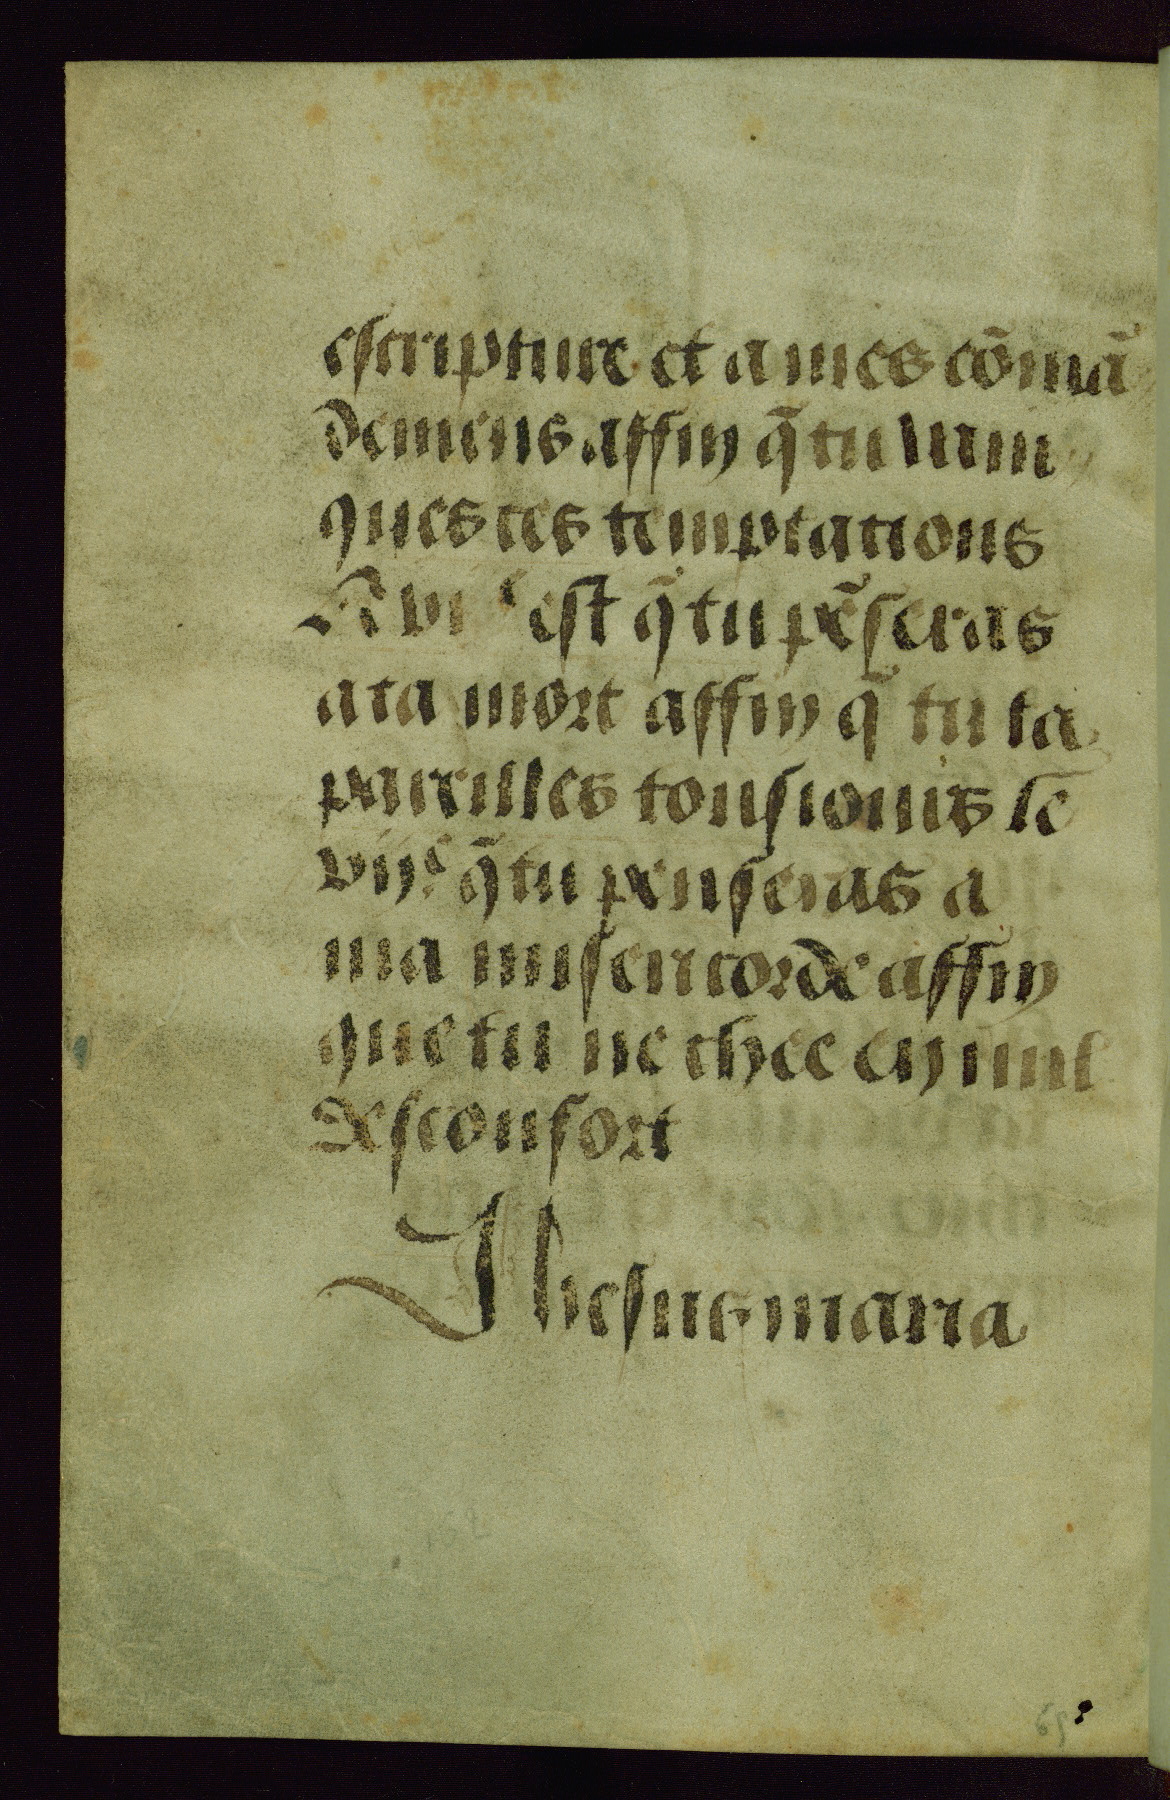 escripture et a mes cōmā
demens affin q̄ tu vain
ques tes temptations
A vi e est q̄ tu pēseras
a ta mort affin q̄ tu ta
pareilles tousiours le
vije q̄ tu penseras a
ma misericorde affin
que tu ne chee en nul
desconfort
Ihesus maria